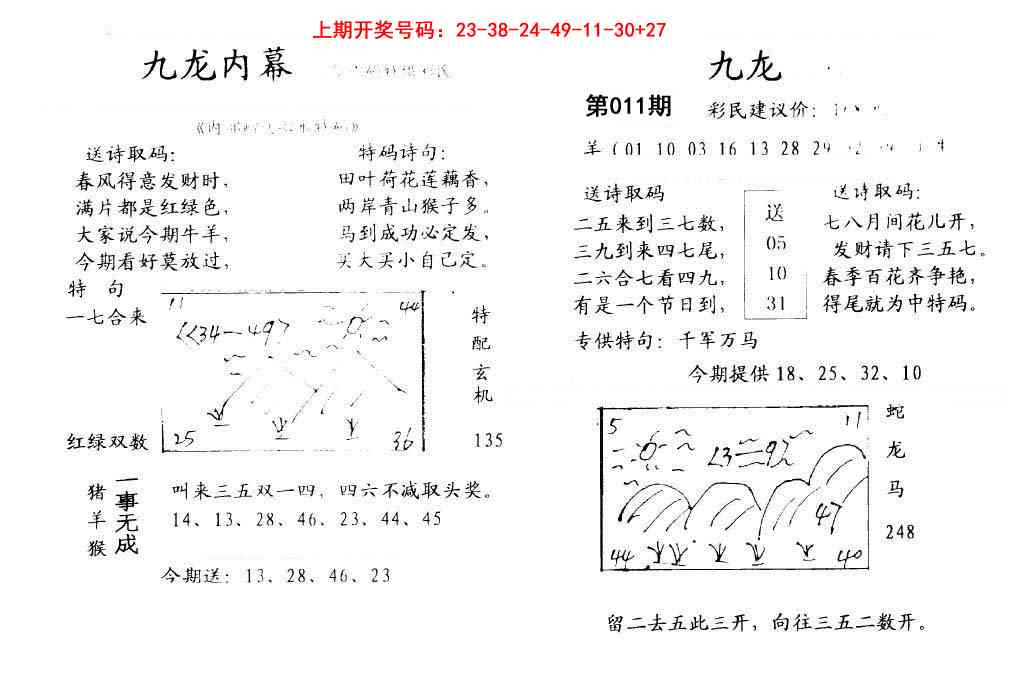 上期开奖号码：23-38-24-49-11-30+27
九龙内幕
送诗取码：
春风得意发财时，
满片都是红绿色，
大家说今期牛羊，
今期看好莫放过，
特码诗句：
田叶荷花莲藕香，
两岸青山猴子多。
马到成功必定发，
买大买小自己定。
特 句
一七合来
红绿双数
11
44
<<34—49>
25
36
特
配
玄
机
135
猪
羊
猴
一事无成
叫来三五双一四，四六不减取头奖。
14、13、28、46、23、44、45
今期送：13、28、46、23
九龙
第011期
彩民建议价：
羊（01 10 03 16 13 28 29
送诗取码
二五来到三七数，
三九到来四七尾，
二六合七看四九，
有是一个节日到，
送
05
10
31
送诗取码：
七八月间花儿开，
发财请下三五七。
春季百花齐争艳，
得尾就为中特码。
专供特句：千军万马
今期提供18、25、32、10
5
11
47
44
40
蛇
龙
马
248
留二去五此三开，向往三五二数开。